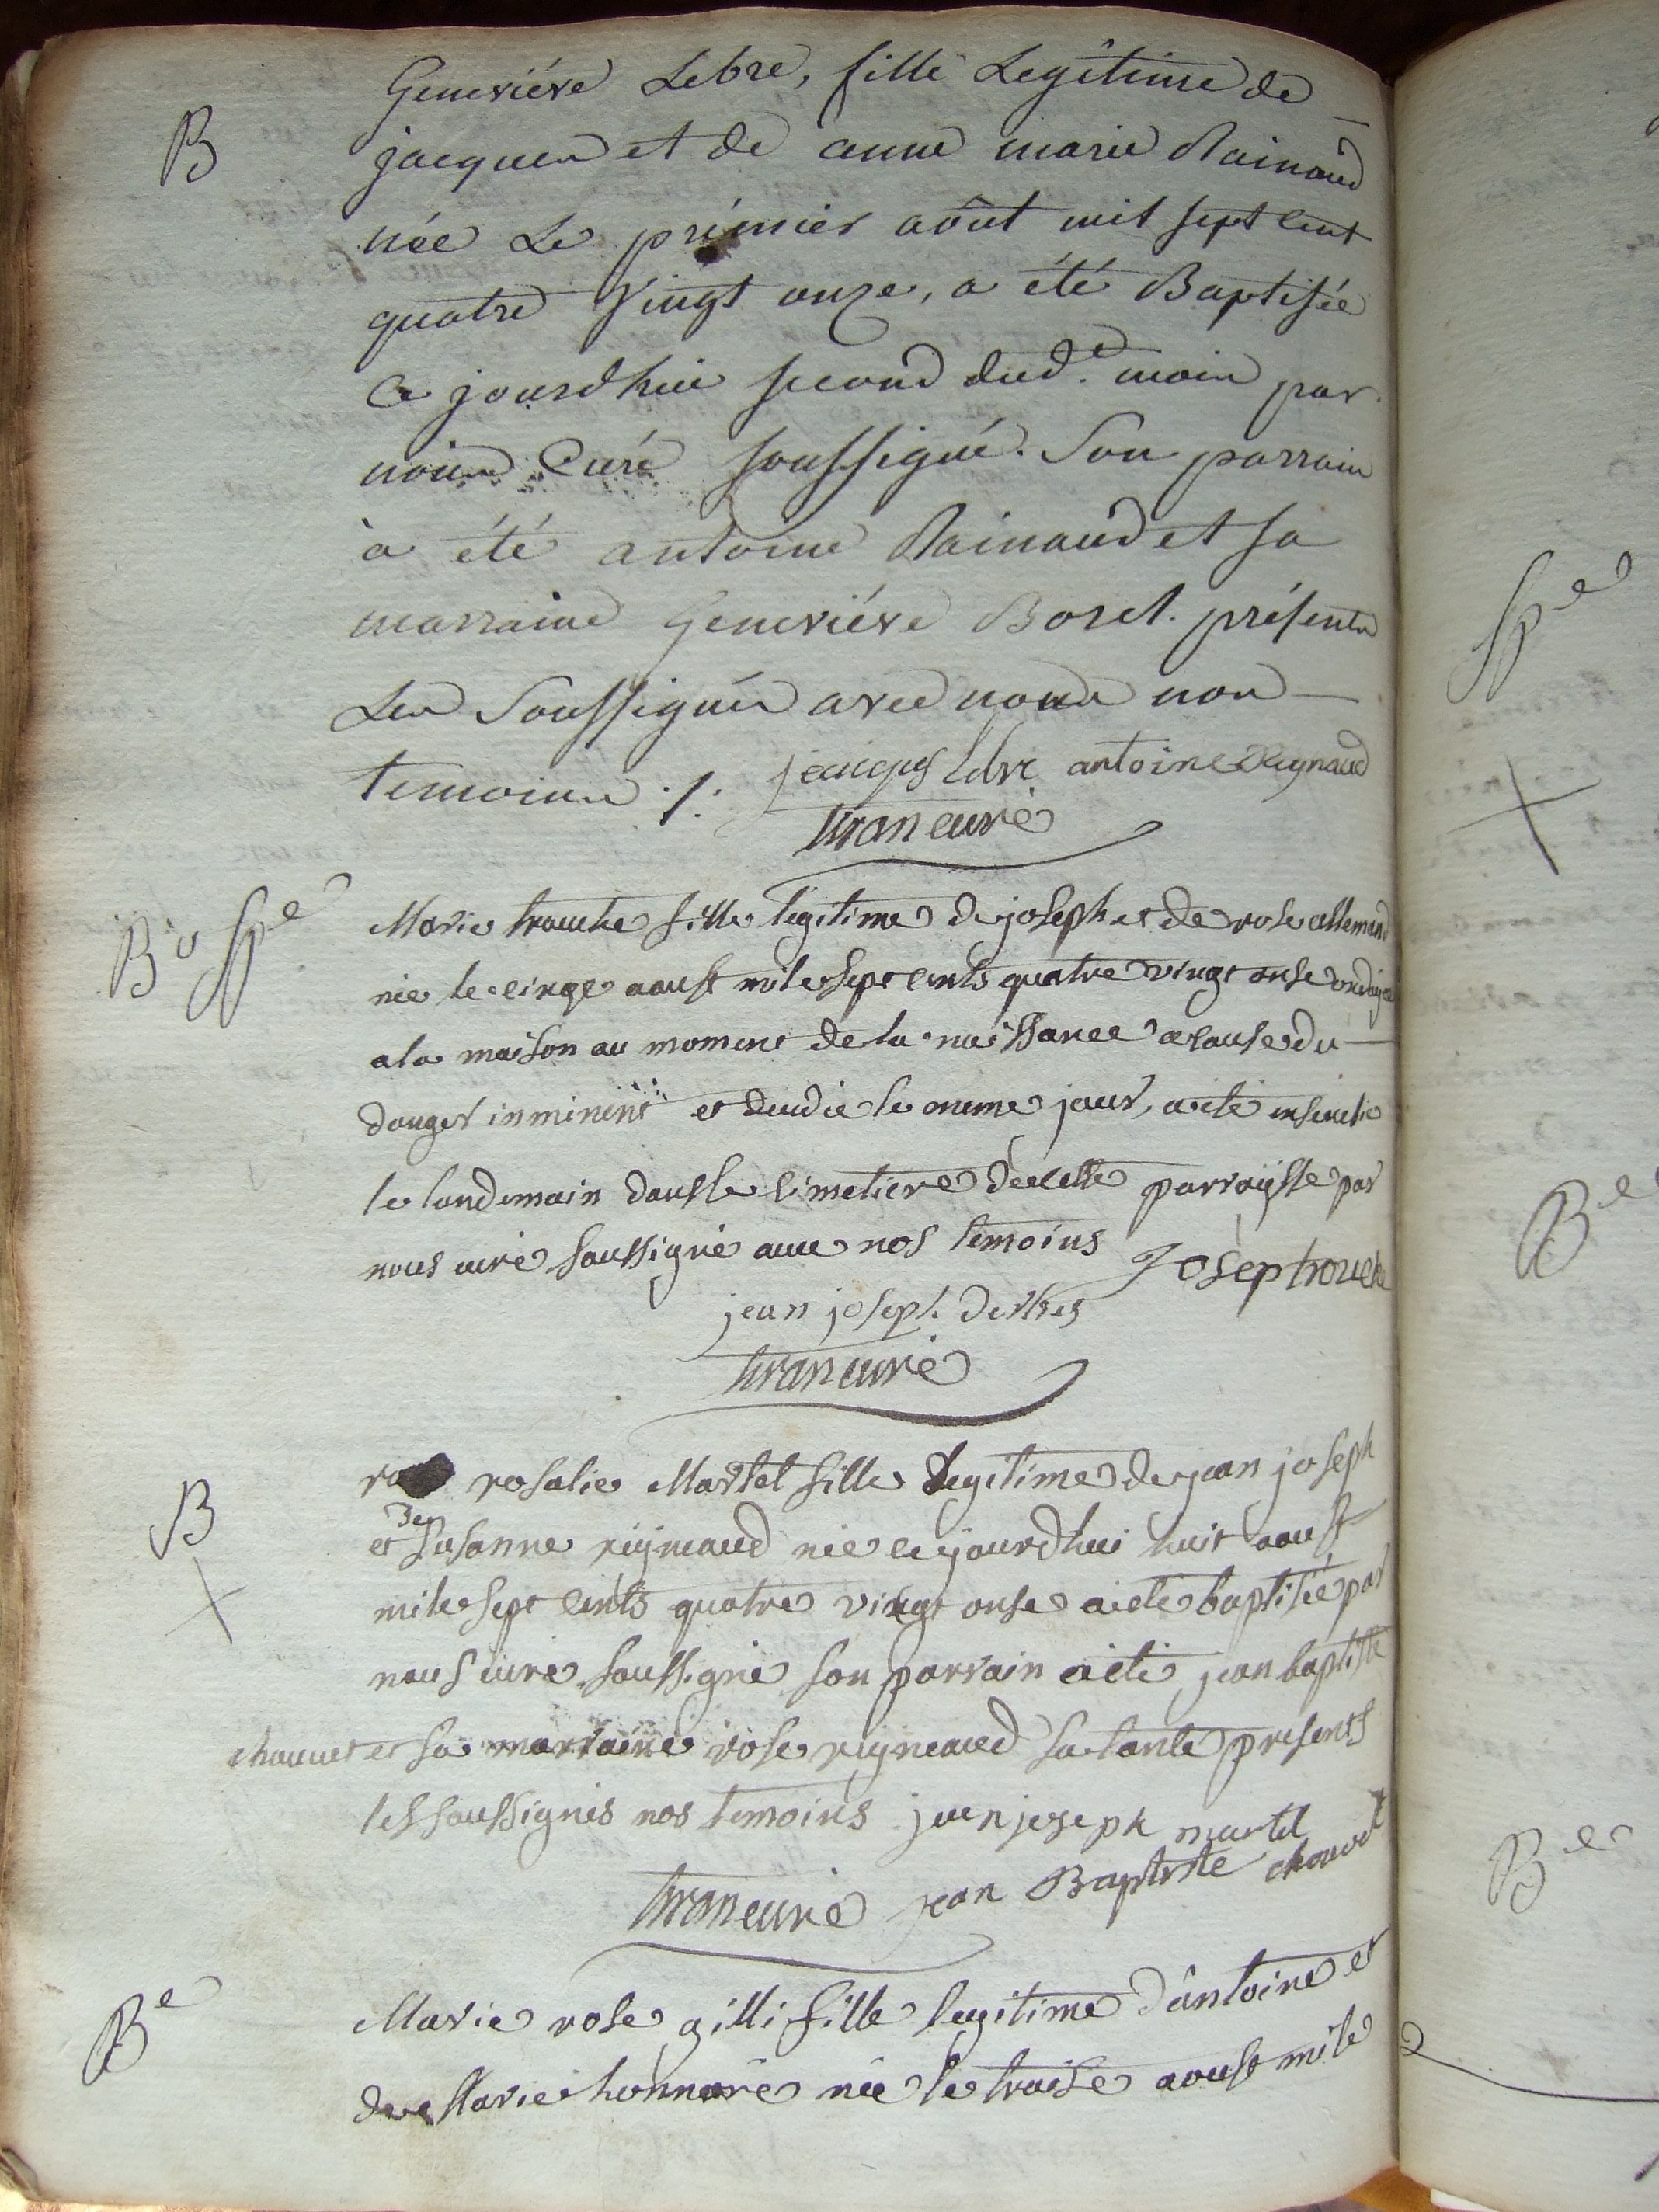 Geneviéve Lebre, fille Legîtime de
B
jacques et de anne marie Rainaud
née Le prémier aôut mil sept cent
quatre vingt onze, a été Baptisée
Ce jourdhui second dud.e mois par
nous Curé soussigné. Son parrain
à été antoine Rainaud et sa
marraine Geneviéve Borel. présents
Les Soussignés avec nous nos
temoins ./. jacques lebre antoine Reynaud
tiran curé
B o Sp e
Marie trouche fille legitime de joseph et de rose allemand
née le cinqe aoust mile sept cents quatre vingt onse ondoyée
a la maison au moment de la naissance a cause du
danger inminent et deudie le meme jour, a été ensevelie
le landemain dans le cimetiere de cette parroisse par
nous curé soussigné avec nos temoins Josep trouche
jean joseph
tiran curé
B
rosalie Martel fille legitime de jean joseph
et de susanne reyneaud née ce jourdhui huit aoust
mile sept cents quatre vingt onse a été baptisée par
nous curé soussigné son parrain a été jean baptiste
chauvet et sa marraine rose reyneaud sa tante presents
les soussignés nos temoins jean joseph martel
tiran curé jean Baptiste chauvet
B e
Marie rose gilli fille legitime d'antoine et
de Marie honnoré née le traise aoust mile
Sp e
B e
B e